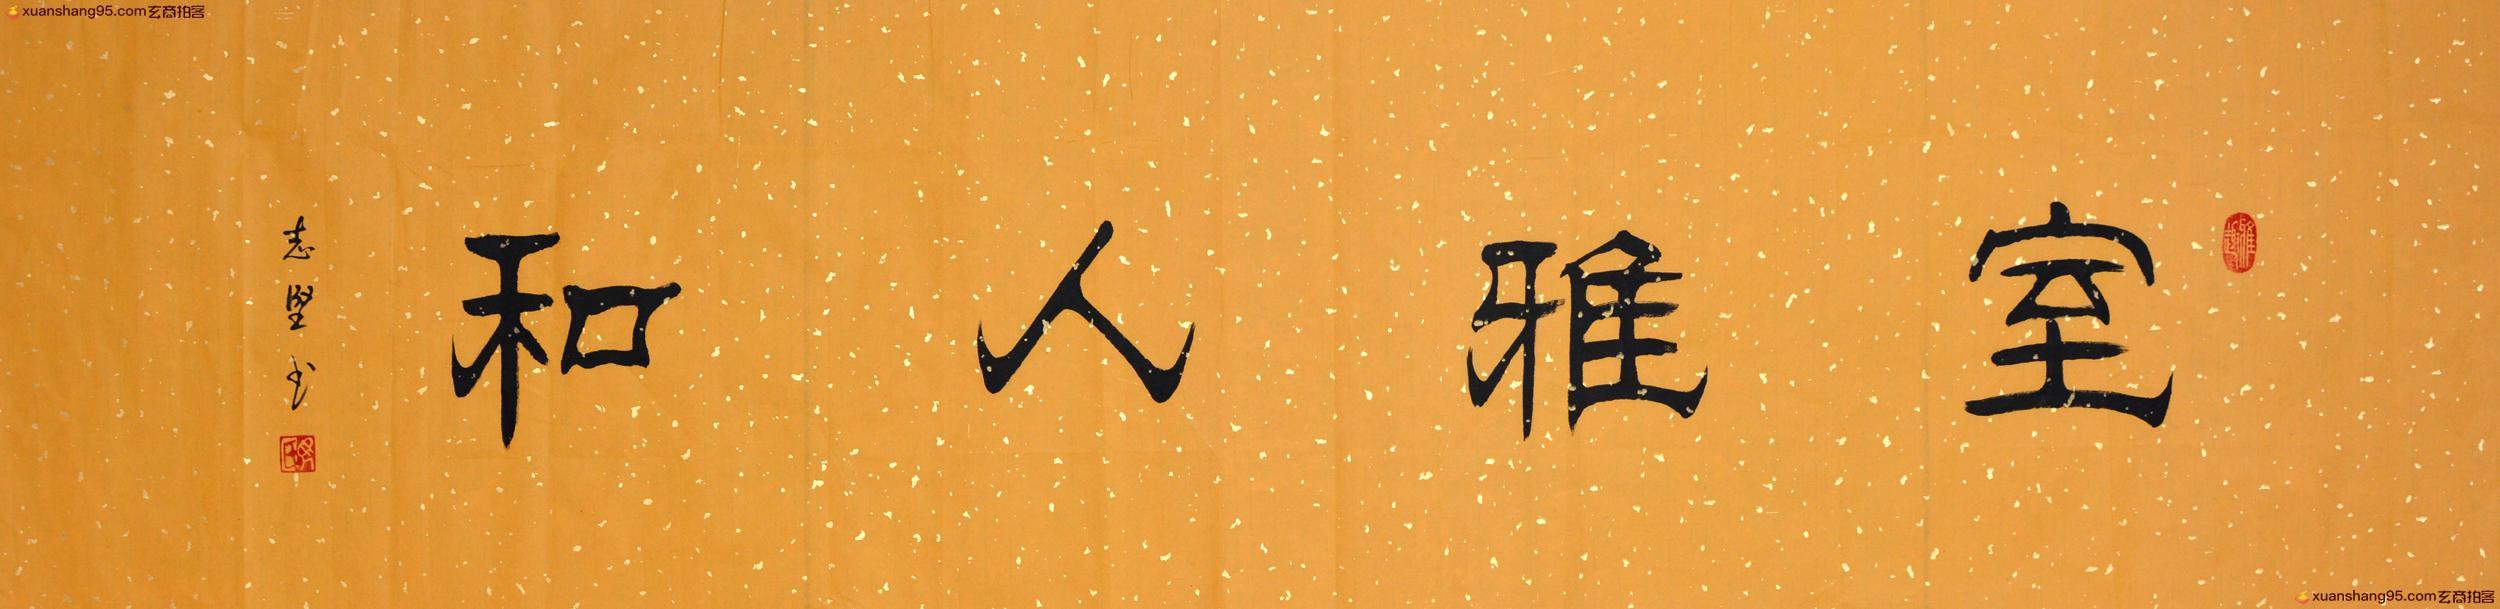 xuanshang95.com玄商拍客
室雅人和
志坚书
xuanshang95.com玄商拍客